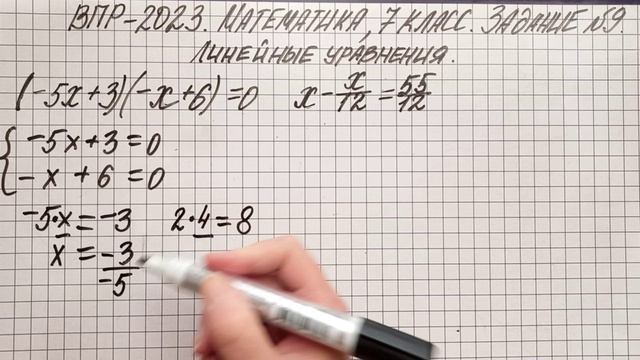 ВПР-2023. МАТЕМАТИКА, 7 КЛАСС. ЗАДАНИЕ №9.
ЛИНЕЙНЫЕ УРАВНЕНИЯ.
(-5x+3)(-x+6)=0 x-x/12=55/12
{-5x+3=0
-x+6=0
-5·x=-3 2·4=8
x=-3/-5